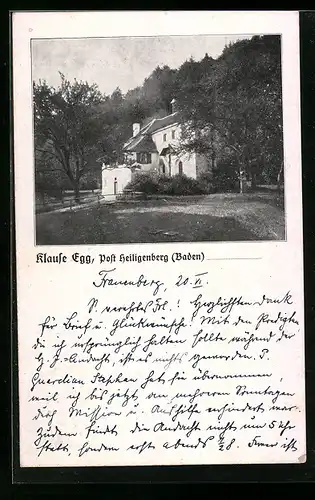 Klause Egg, Post Heiligenberg (Baden)
Frauenberg, 20. VI.
S. verehrtes Frl.! Herzlichsten Dank
für Brief u. Glückwünsche! Mit den Predigten
die ich ursprünglich halten sollte während der
H. J.-Andacht, ist es nichts geworden. P.
Guardian Stephan hat sie übernommen,
weil ich bis jetzt an mehreren Sonntagen
durch Mission u. Aushilfe verhindert war.
Zudem findet die Andacht nicht um 5 Uhr
statt, sondern erst abends ½ 8. Ferner ist